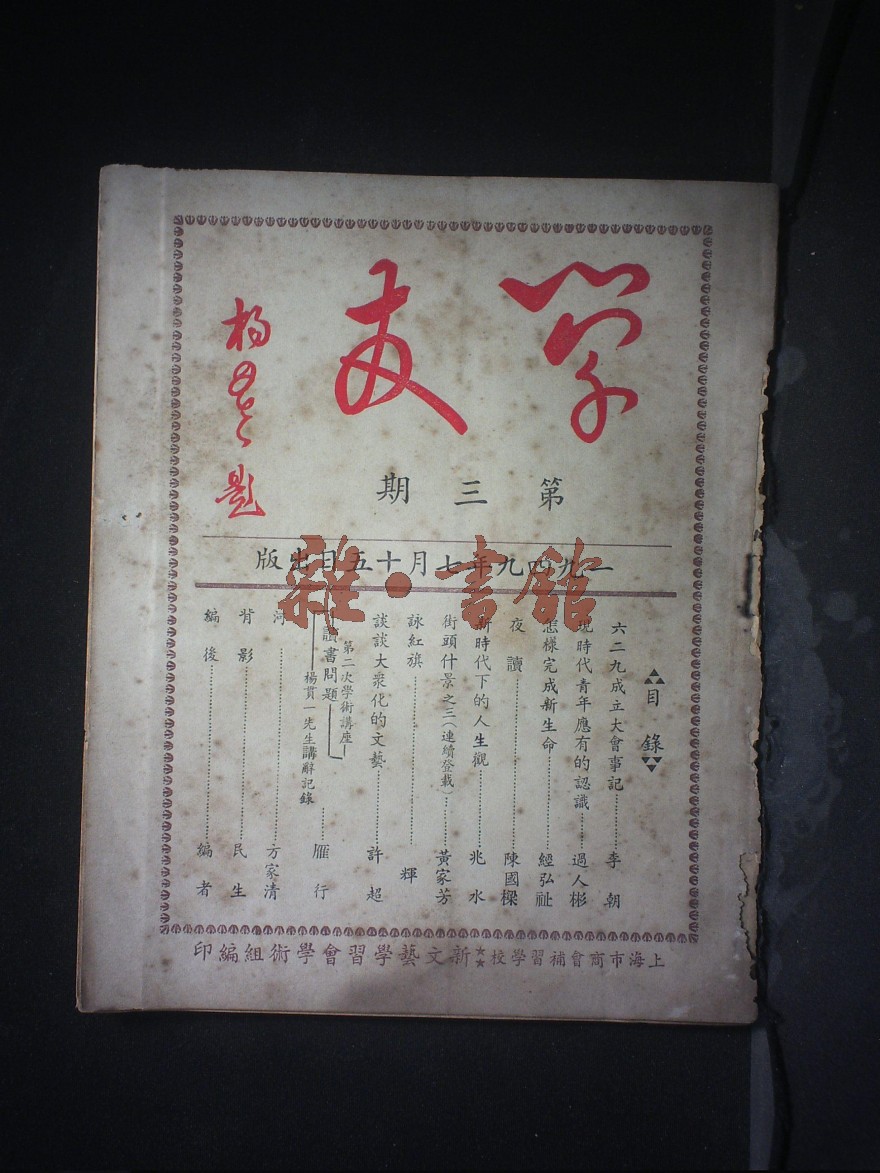 學友
楊
題
第三期
一九四九年七月十五日出版
雜·書館
目錄
六二九成立大會事記……李朝
現時代青年應有的認識……過人彬
怎樣完成新生命……經弘祉
夜讀……陳國樑
新時代下的人生觀……兆水
街頭什景之三(連續登載)……黃家芳
詠紅旗……輝
談談大衆化的文藝……許超
第二次學術講座
讀書問題
楊貫一先生講辭記錄……雁行
河……方家清
背影……民生
編後……編者
上海市商會補習學校★★新文藝學習會學術組編印